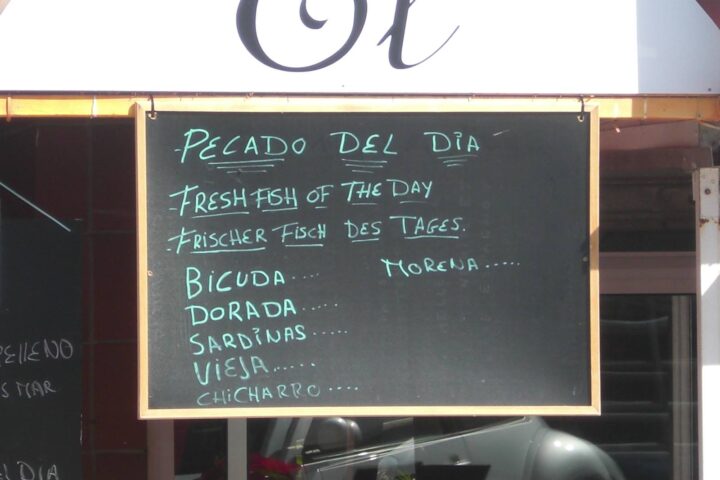 -PECADO DEL DIA
FRESH FISH OF THE DAY
FRISCHER FISCH DES TAGES.
BICUDA....
DORADA.....
SARDINAS.....
VIEJA......
CHICHARRO....
MORENA.....
ELLENO
MAR
DIA